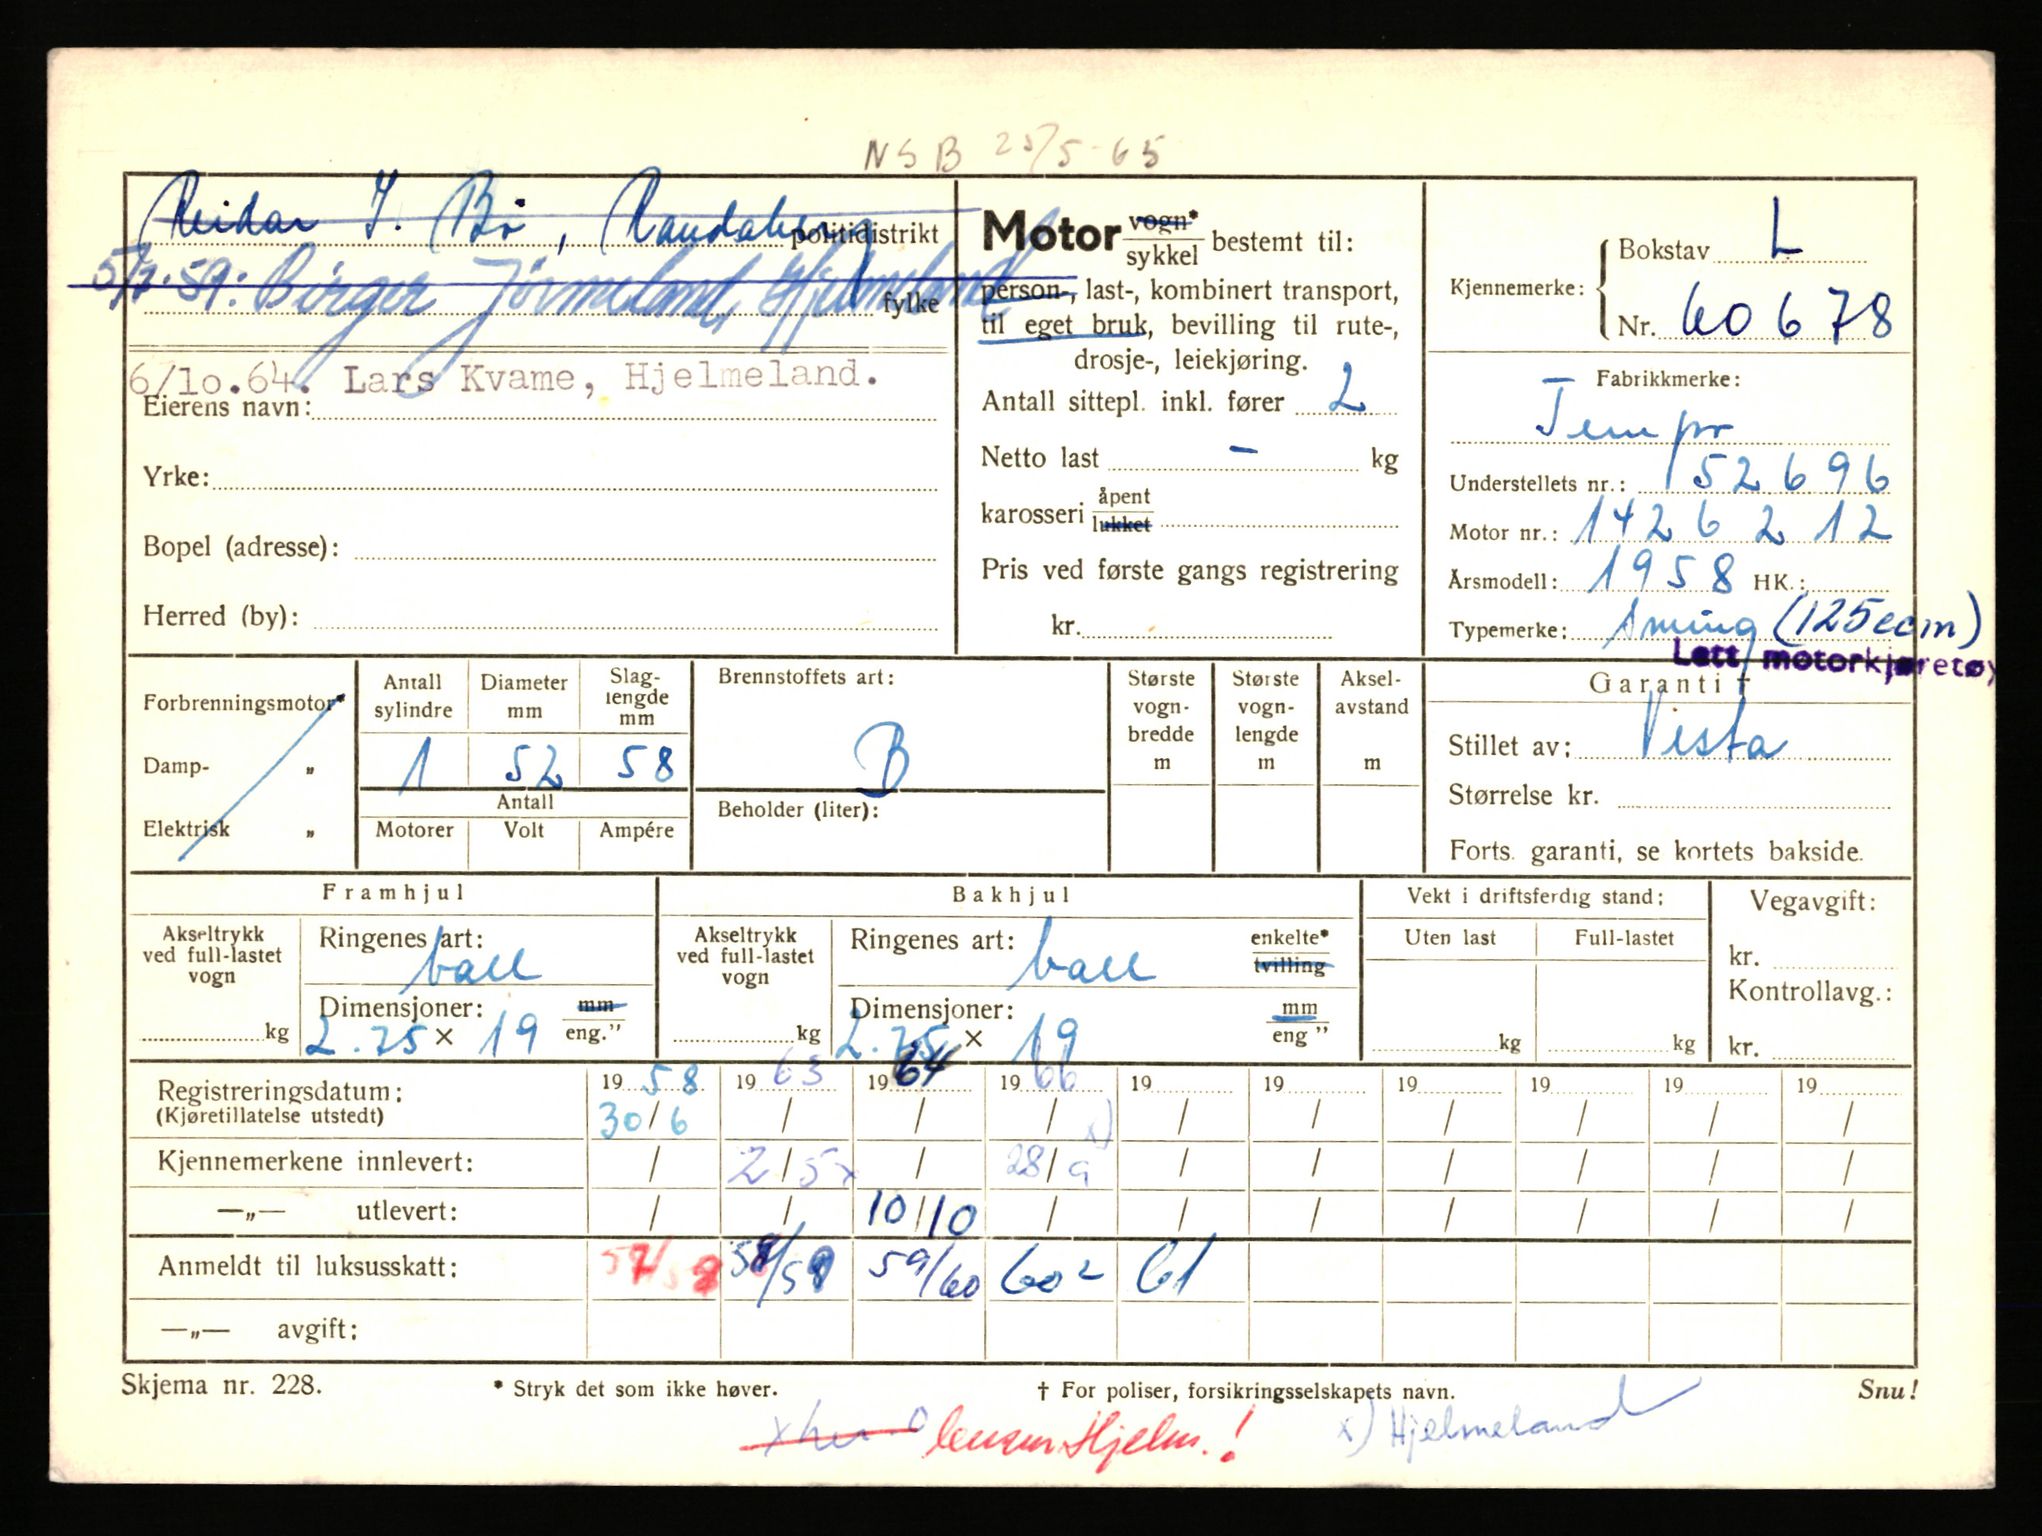 NSB 25/5-65
Reidar I. Bø, Randaberg politidistrikt
5/7-59: Birger Jörmeland, Hjelmeland fylke
6/10.64. Lars Kvame, Hjelmeland.
Eierens navn:
Yrke:
Bopel (adresse):
Herred (by):
Motor vogn* sykkel bestemt til:
person-, last-, kombinert transport,
til eget bruk, bevilling til rute-,
drosje-, leiekjøring.
Antall sittepl. inkl. fører 2
Netto last - kg
karosseri åpent lukket
Pris ved første gangs registrering
kr.
Kjennemerke: Bokstav L
Nr. 60678
Fabrikkmerke:
Tempo
Understellets nr.: 152696
Motor nr.: 1426212
Årsmodell: 1958 HK.:
Typemerke: (125ccm)
Lett motorkjøretøy
Forbrenningsmotor*
Damp- "
Elektrisk "
Antall sylindre Diameter mm Slaglengde mm
1 52 58
Antall
Motorer Volt Ampére
Brennstoffets art:
B
Beholder (liter):
Største vogn-bredde m
Største vogn-lengde m
Aksel-avstand m
Garanti †
Stillet av: Vesta
Størrelse kr.
Forts. garanti, se kortets bakside.
Framhjul
Akseltrykk ved full-lastet vogn kg
Ringenes art: ball
Dimensjoner: mm
2.75 x 19 eng."
Bakhjul
Akseltrykk ved full-lastet vogn kg
Ringenes art: ball enkelte* tvilling
Dimensjoner: mm
2.75 x 19 eng"
Vekt i driftsferdig stand:
Uten last Full-lastet
kg kg
Vegavgift:
kr.
Kontrollavg.:
kr.
Registreringsdatum: 1958 1963 1964 1966 19 19 19 19 19 19
(Kjøretillatelse utstedt) 30/6 / / / / / / / / /
Kjennemerkene innlevert: / 2/5x / 28/9 x) / / / / / /
—„— utlevert: / / 10/10 / / / / / / /
Anmeldt til luksusskatt: 57/58 58/59 59/60 60² 61
—„— avgift:
Skjema nr. 228. * Stryk det som ikke høver. † For poliser, forsikringsselskapets navn. Snu!
Hjelm.! x) Hjelmeland